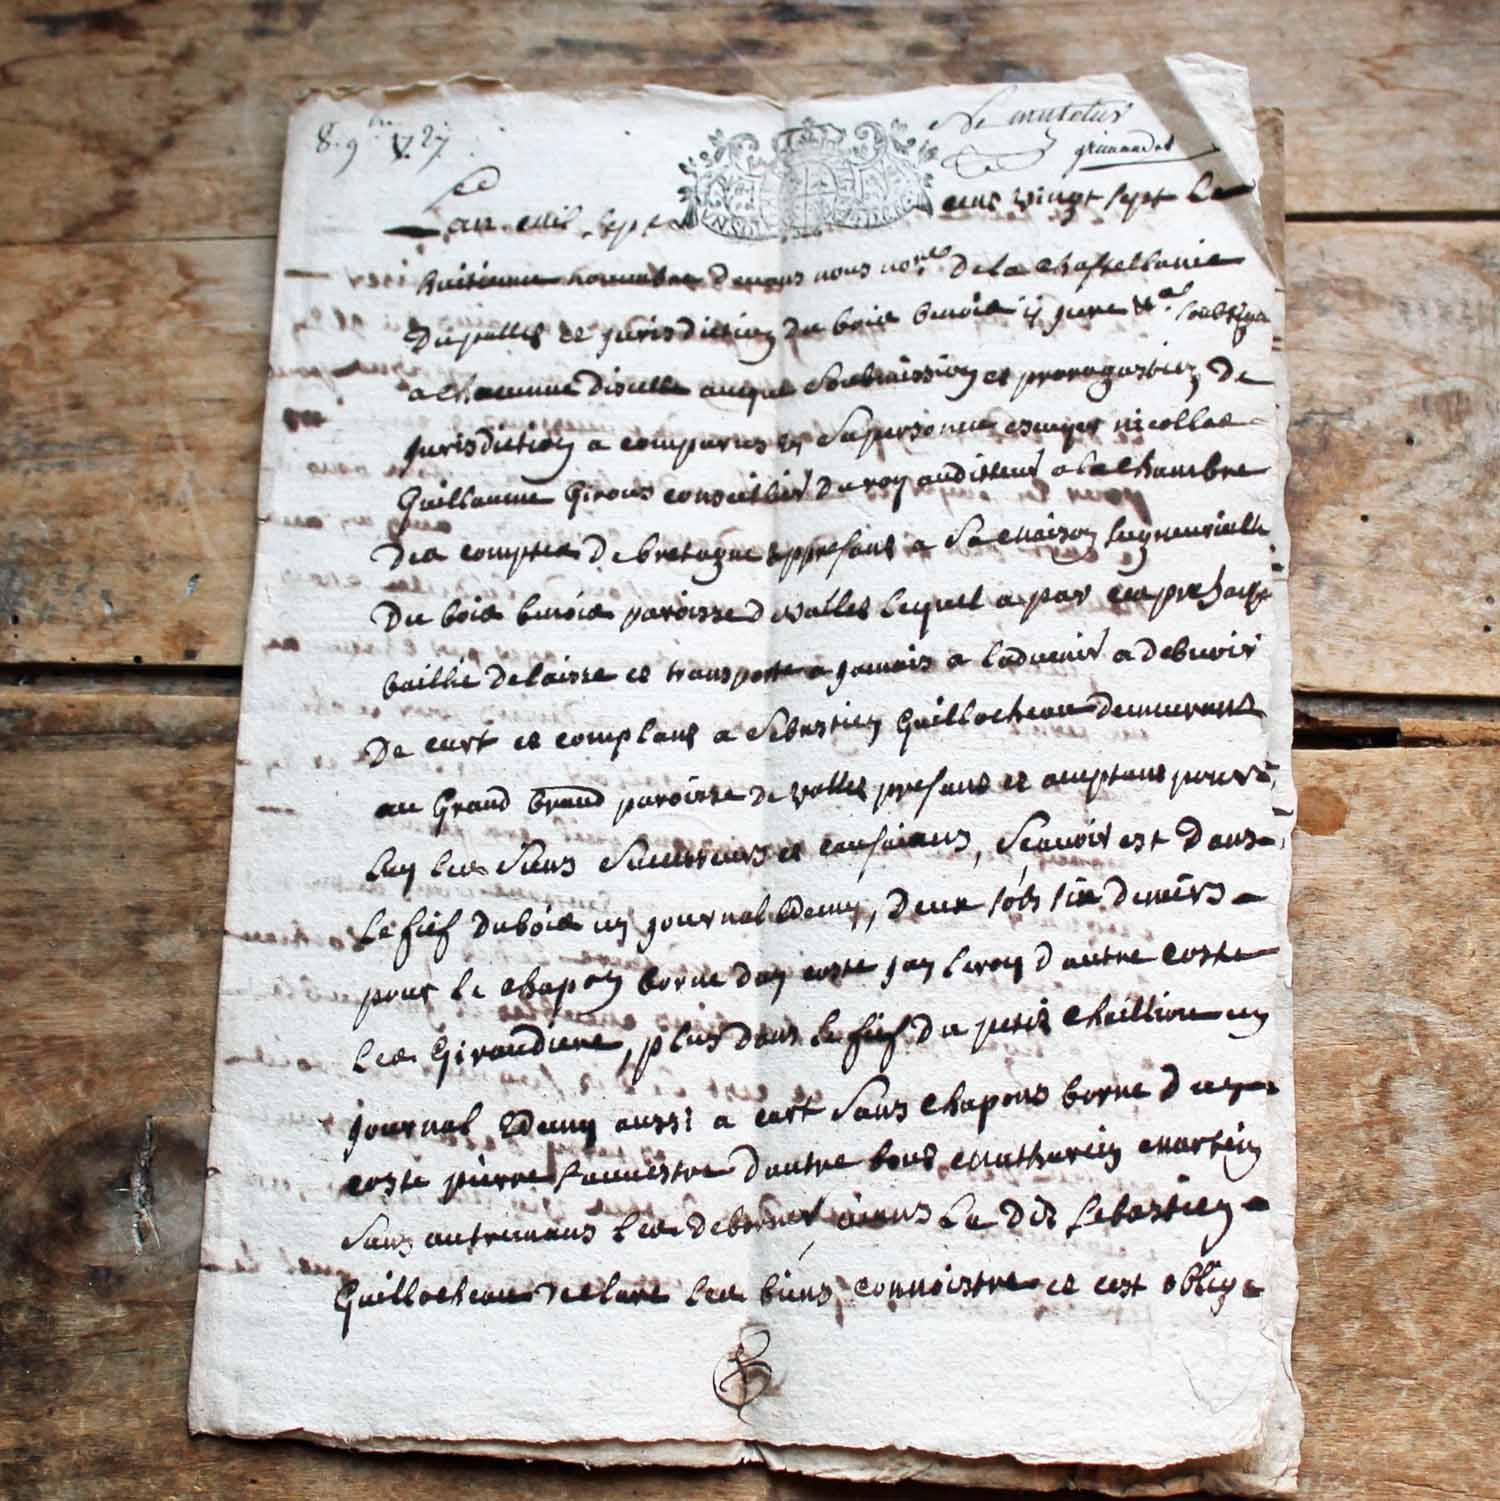 8. 9bre 1727
Le
L an mil sept cens vingt sept Le
huitieme novembre devans nous nores De la chastellanie
Du pallet et jurisdiction du bois benoist y jure
a Chacunne dicelle avecque Soubmission et prorogastion De
jurisdiction a comparus en Sa personne escuyer nicollas
Guillaume Giroust conseiller Du roy auditteur a la Chambre
Des comptes De bretagne present a Sa maison seigneurialle
Du bois benoist paroisse De vallet Lequel a par ces presantes
baillé delaisse et transporte a jamais a ladvenir a debvoir
De cart et complant a Sebastien Guillocheau demeurant
au Grand braud paroisse de vallet presant et acceptant pour
Luy Les Siens Successeurs et causaians, Scavoir est Dans
Le fief du bois un journal Demy, Deux sols six deniers
pour Le chapon borne d'un coste jan Leroy d autre coste
Les Giraudiere, plus dans Le fief Du petit Chailliou un
journal Demy aussi a cart Sans chapons borne D un
coste pierre Saunestre dautre bout Mathurin Martin
Sans autremans Les deborner aians Le Dit Sebastien
Guillocheau declare Les biens connoistre et cest oblige